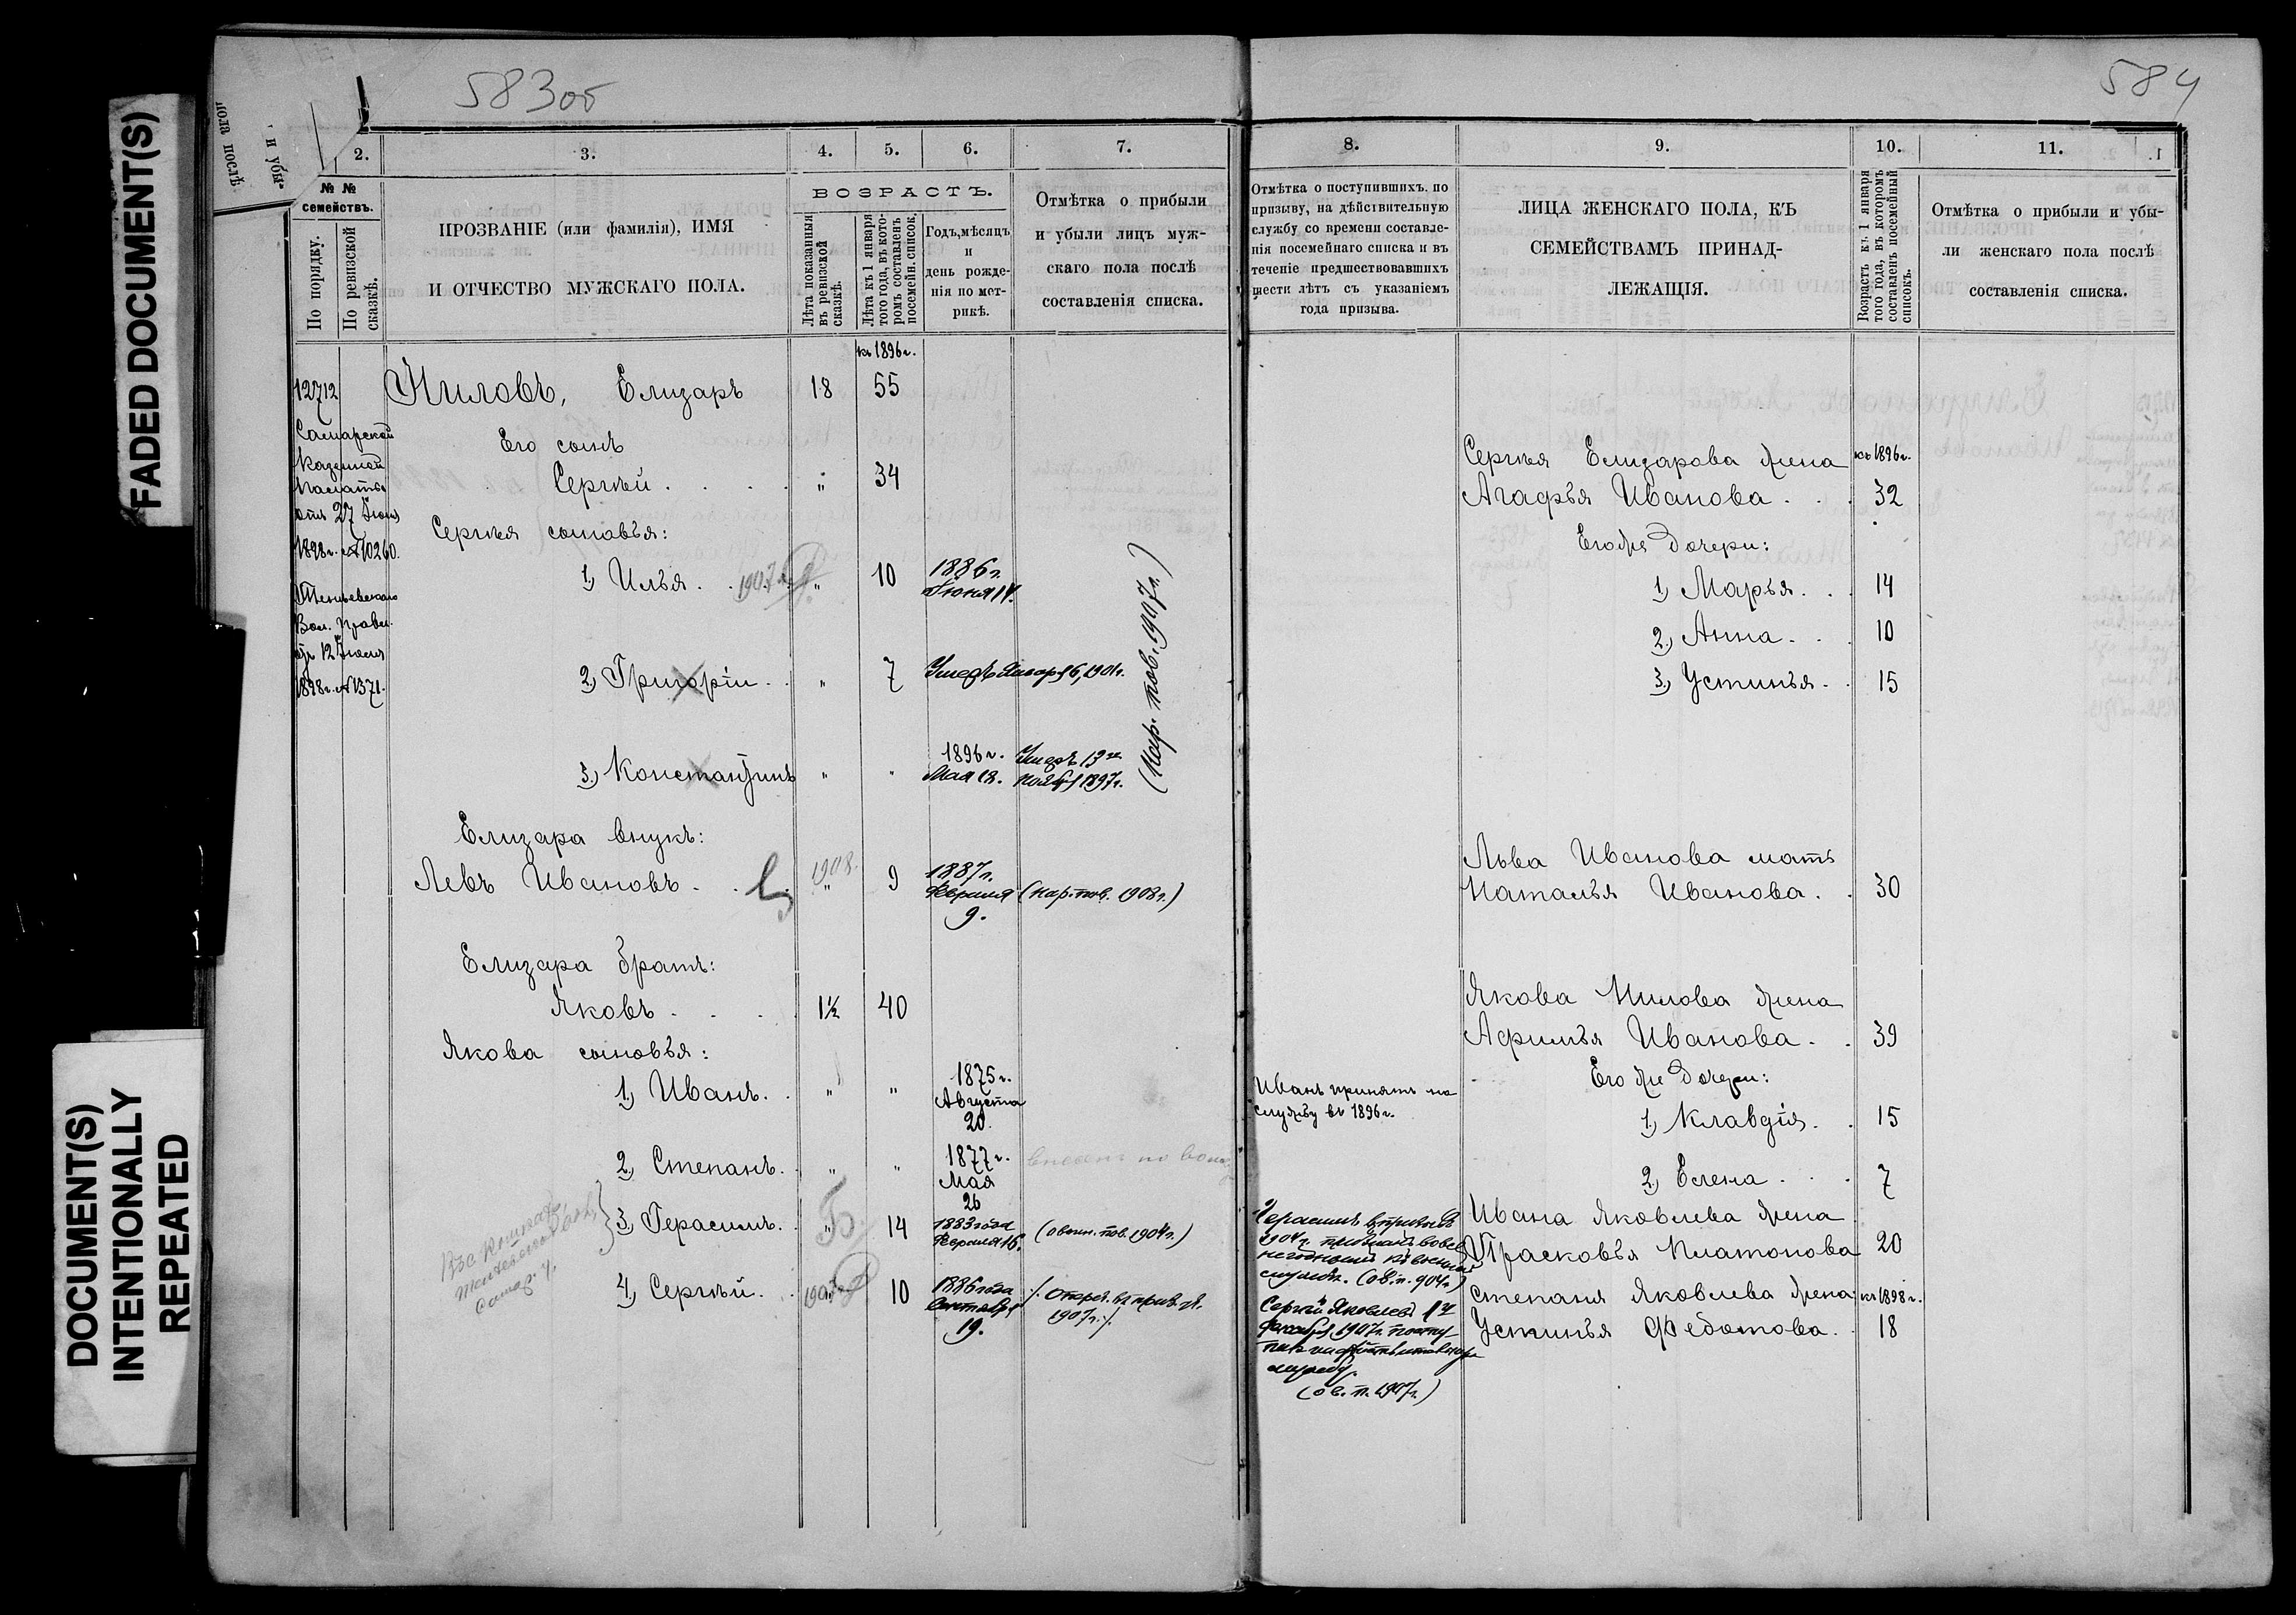 FADED DOCUMENT(S)
DOCUMENT(S)
INTENTIONALLY
REPEATED
583об
584
пола послѣ
и убы-
2.
3.
4.
5.
6.
7.
№ №
семействъ.
По порядку.
По ревизской
сказкѣ.
ПРОЗВАНІЕ (или фамилія), ИМЯ
И ОТЧЕСТВО МУЖСКАГО ПОЛА.
ВОЗРАСТЪ.
Лѣта показанныя
въ ревизской
сказкѣ.
Лѣта къ 1 января
того года, въ кото-
ромъ составленъ
посемейн. список.
Годъ, мѣсяцъ
и
день рожде-
нія по мет-
рикѣ.
Отмѣтка о прибыли
и убыли лицъ муж-
скаго пола послѣ
составленія списка.
къ 1896 г.
12712
Ниловъ, Елизаръ 18 55
Самарской
Казенной
Палаты
отъ 27 Іюня
1898 г. № 10260.
Вол. Правл.
12 Іюля
1898 г. № 1371.
Его сынъ
Сергѣй . . . . " 34
Сергѣя сыновья:
1) Илья . . 1907 г. " 10 1886 г.
Іюня 14.
2) Григорій . . " 7 Умеръ Января 6, 1901 г.
3) Константинъ " " 1896 г.
Мая 18. Умеръ 13го
Ноября 1897 г.
(Нар. пов. 1907 г.)
Елизара внукъ:
Левъ Ивановъ . . 1908. " 9 1887 г.
Февраля
9. (Нар. пов. 1908 г.)
Елизара братъ:
Яковъ . . . . 1½ 40
Якова сыновья:
1) Иванъ . . " " 1875 г.
Августа
20.
2) Степанъ . . " " 1877 г.
Мая
26
3) Герасимъ . . " 14 1883 года
Февраля 16. (о воин. пов. 1904 г.)
4) Сергѣй . . 1907 г. 10 1886 года
Сентября
19. /. Отсроч. въ приз. г.
1907 г. /.
8.
9.
10.
11.
1.
Отмѣтка о поступившихъ по
призыву, на дѣйствительную
службу со времени составле-
нія посемейнаго списка и въ
теченіе предшествовавшихъ
шести лѣтъ съ указаніемъ
года призыва.
ЛИЦА ЖЕНСКАГО ПОЛА, КЪ
СЕМЕЙСТВАМЪ ПРИНАД-
ЛЕЖАЩІЯ.
Возрастъ къ 1 января
того года, въ которомъ
составленъ посемейный
списокъ.
Отмѣтка о прибыли и убы-
ли женскаго пола послѣ
составленія списка.
Сергѣя Елизарова жена къ 1896 г.
Агафья Иванова . . . 32
Его же дочери:
1) Марья . . . 14
2) Анна . . . 10
3) Устинья . . 15
Льва Иванова мать
Наталья Иванова . . 30
Якова Нилова жена
Афимья Иванова . . 39
Его же дочери:
Иванъ принятъ на
службу въ 1896 г.
1) Клавдія . . 15
2) Елена . . . 7
Ивана Яковлева жена
Прасковья Платонова 20
Степана Яковлева жена къ 1898 г.
Устинья Федотова . 18
Герасимъ въ призывъ
1904 г. признанъ вовсе
негоднымъ къ военной
службѣ. (о в. п. 904 г.)
Сергѣй Яковлевъ 1го
Декабря 1907 г. посту-
службу.
(о в. п. 1907 г.)